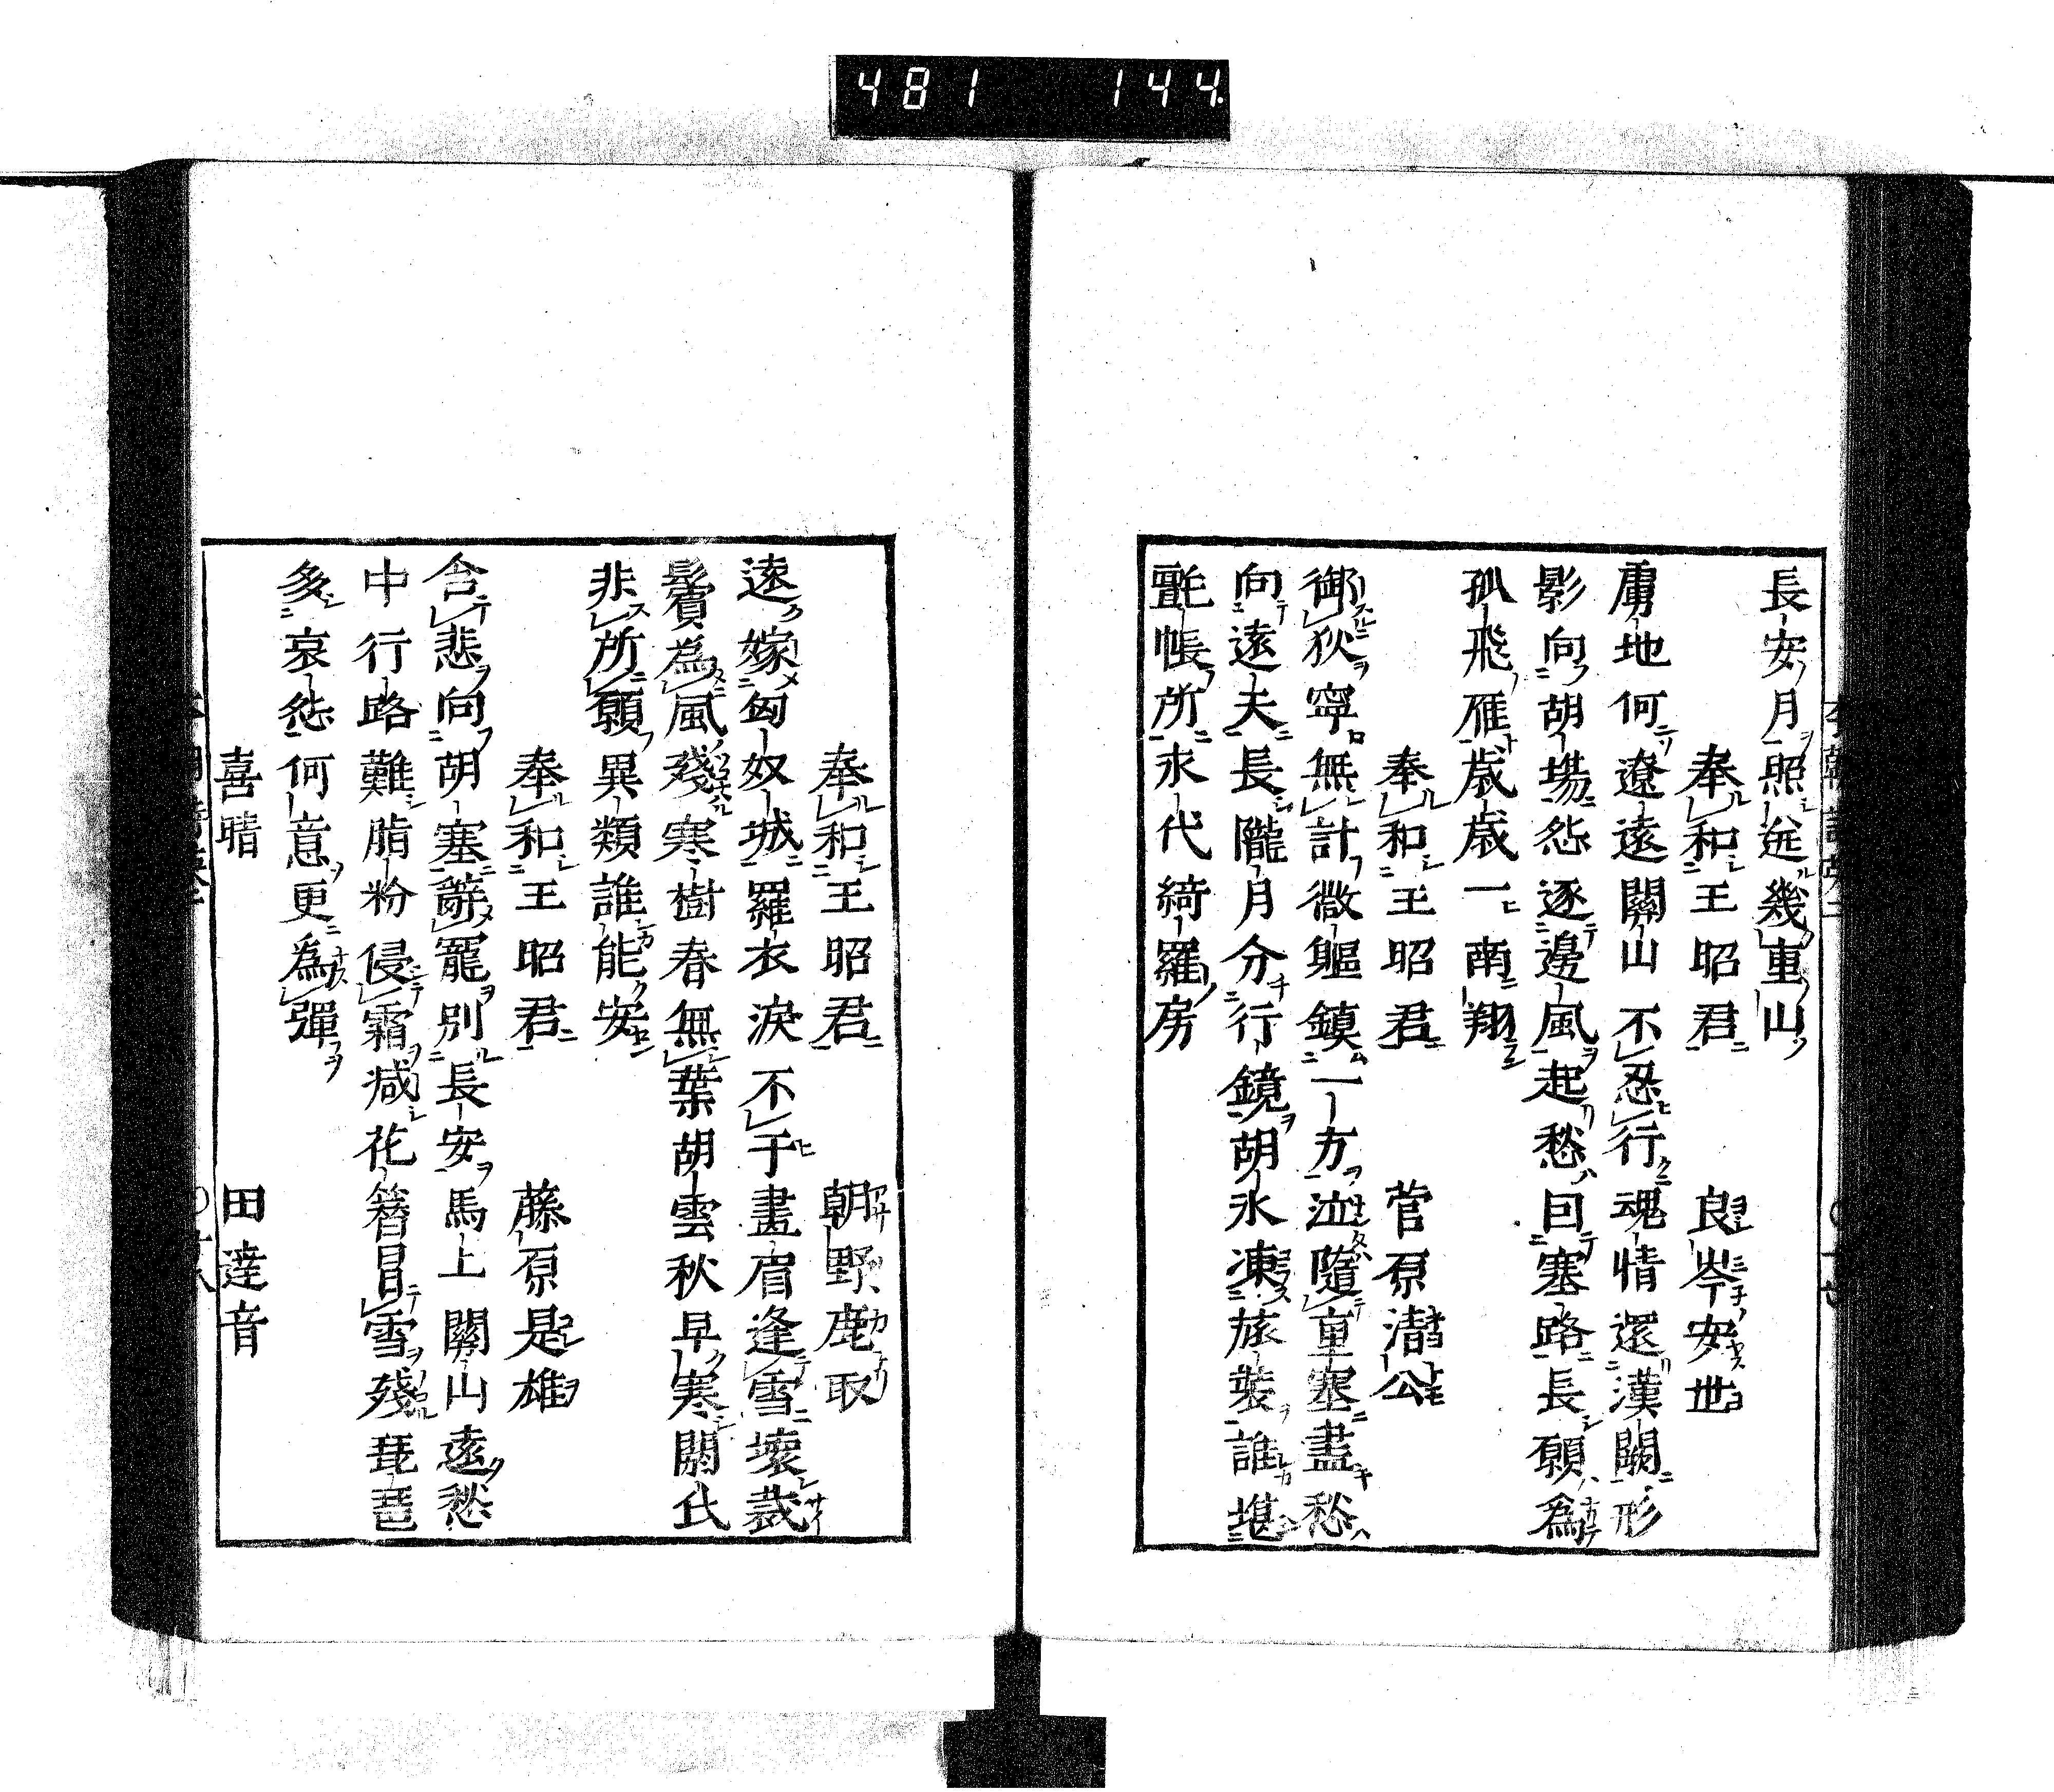 481 144
長安月照近幾重山
奉和王昭君 良岑安世
虜地何遼遠關山不忍行魂情還漢闕形
影向胡場怨逐邊風起愁回塞路長願為
孤飛雁歳歳一南翔
奉和王昭君 菅原清公
御狄寧無計微軀鎮一方泣隨重塞盡愁
向遠天長隴月分行鏡胡氷凍旅裝誰堪
氈帳所永代綺羅房
奉和王昭君 朝野鹿取
遠嫁匈奴城羅衣淚不干畫眉逢雪壞裁
鬢為風殘寒樹春無葉胡雲秋早寒閼氏
非所願異類誰能安
奉和王昭君 藤原是雄
含悲向胡塞辭寵別長安馬上關山遠愁
中行路難脂粉侵霜減花簪冒雪殘琵琶
多哀怨何意更為彈
喜晴 田達音